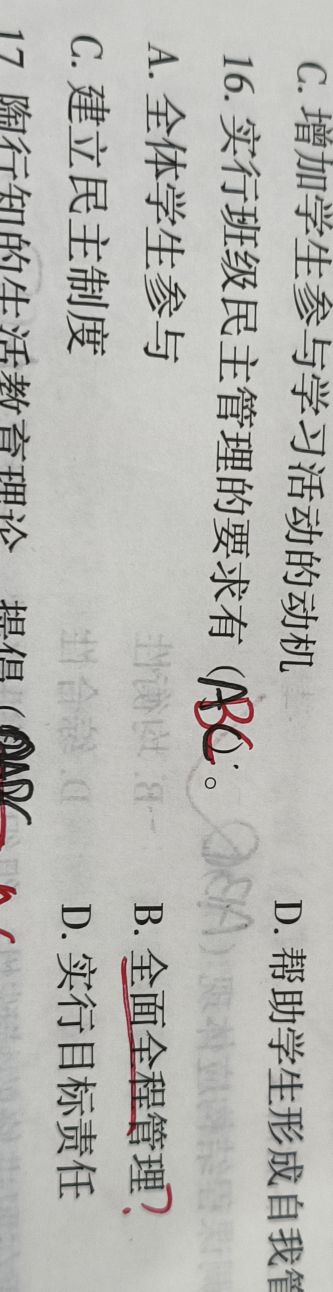 C. 增加学生参与学习活动的动机 D. 帮助学生形成自我管
16. 实行班级民主管理的要求有(ABC)。
A. 全体学生参与 B. 全面全程管理?
C. 建立民主制度 D. 实行目标责任
17 陶行知的生活教育理论 提倡(